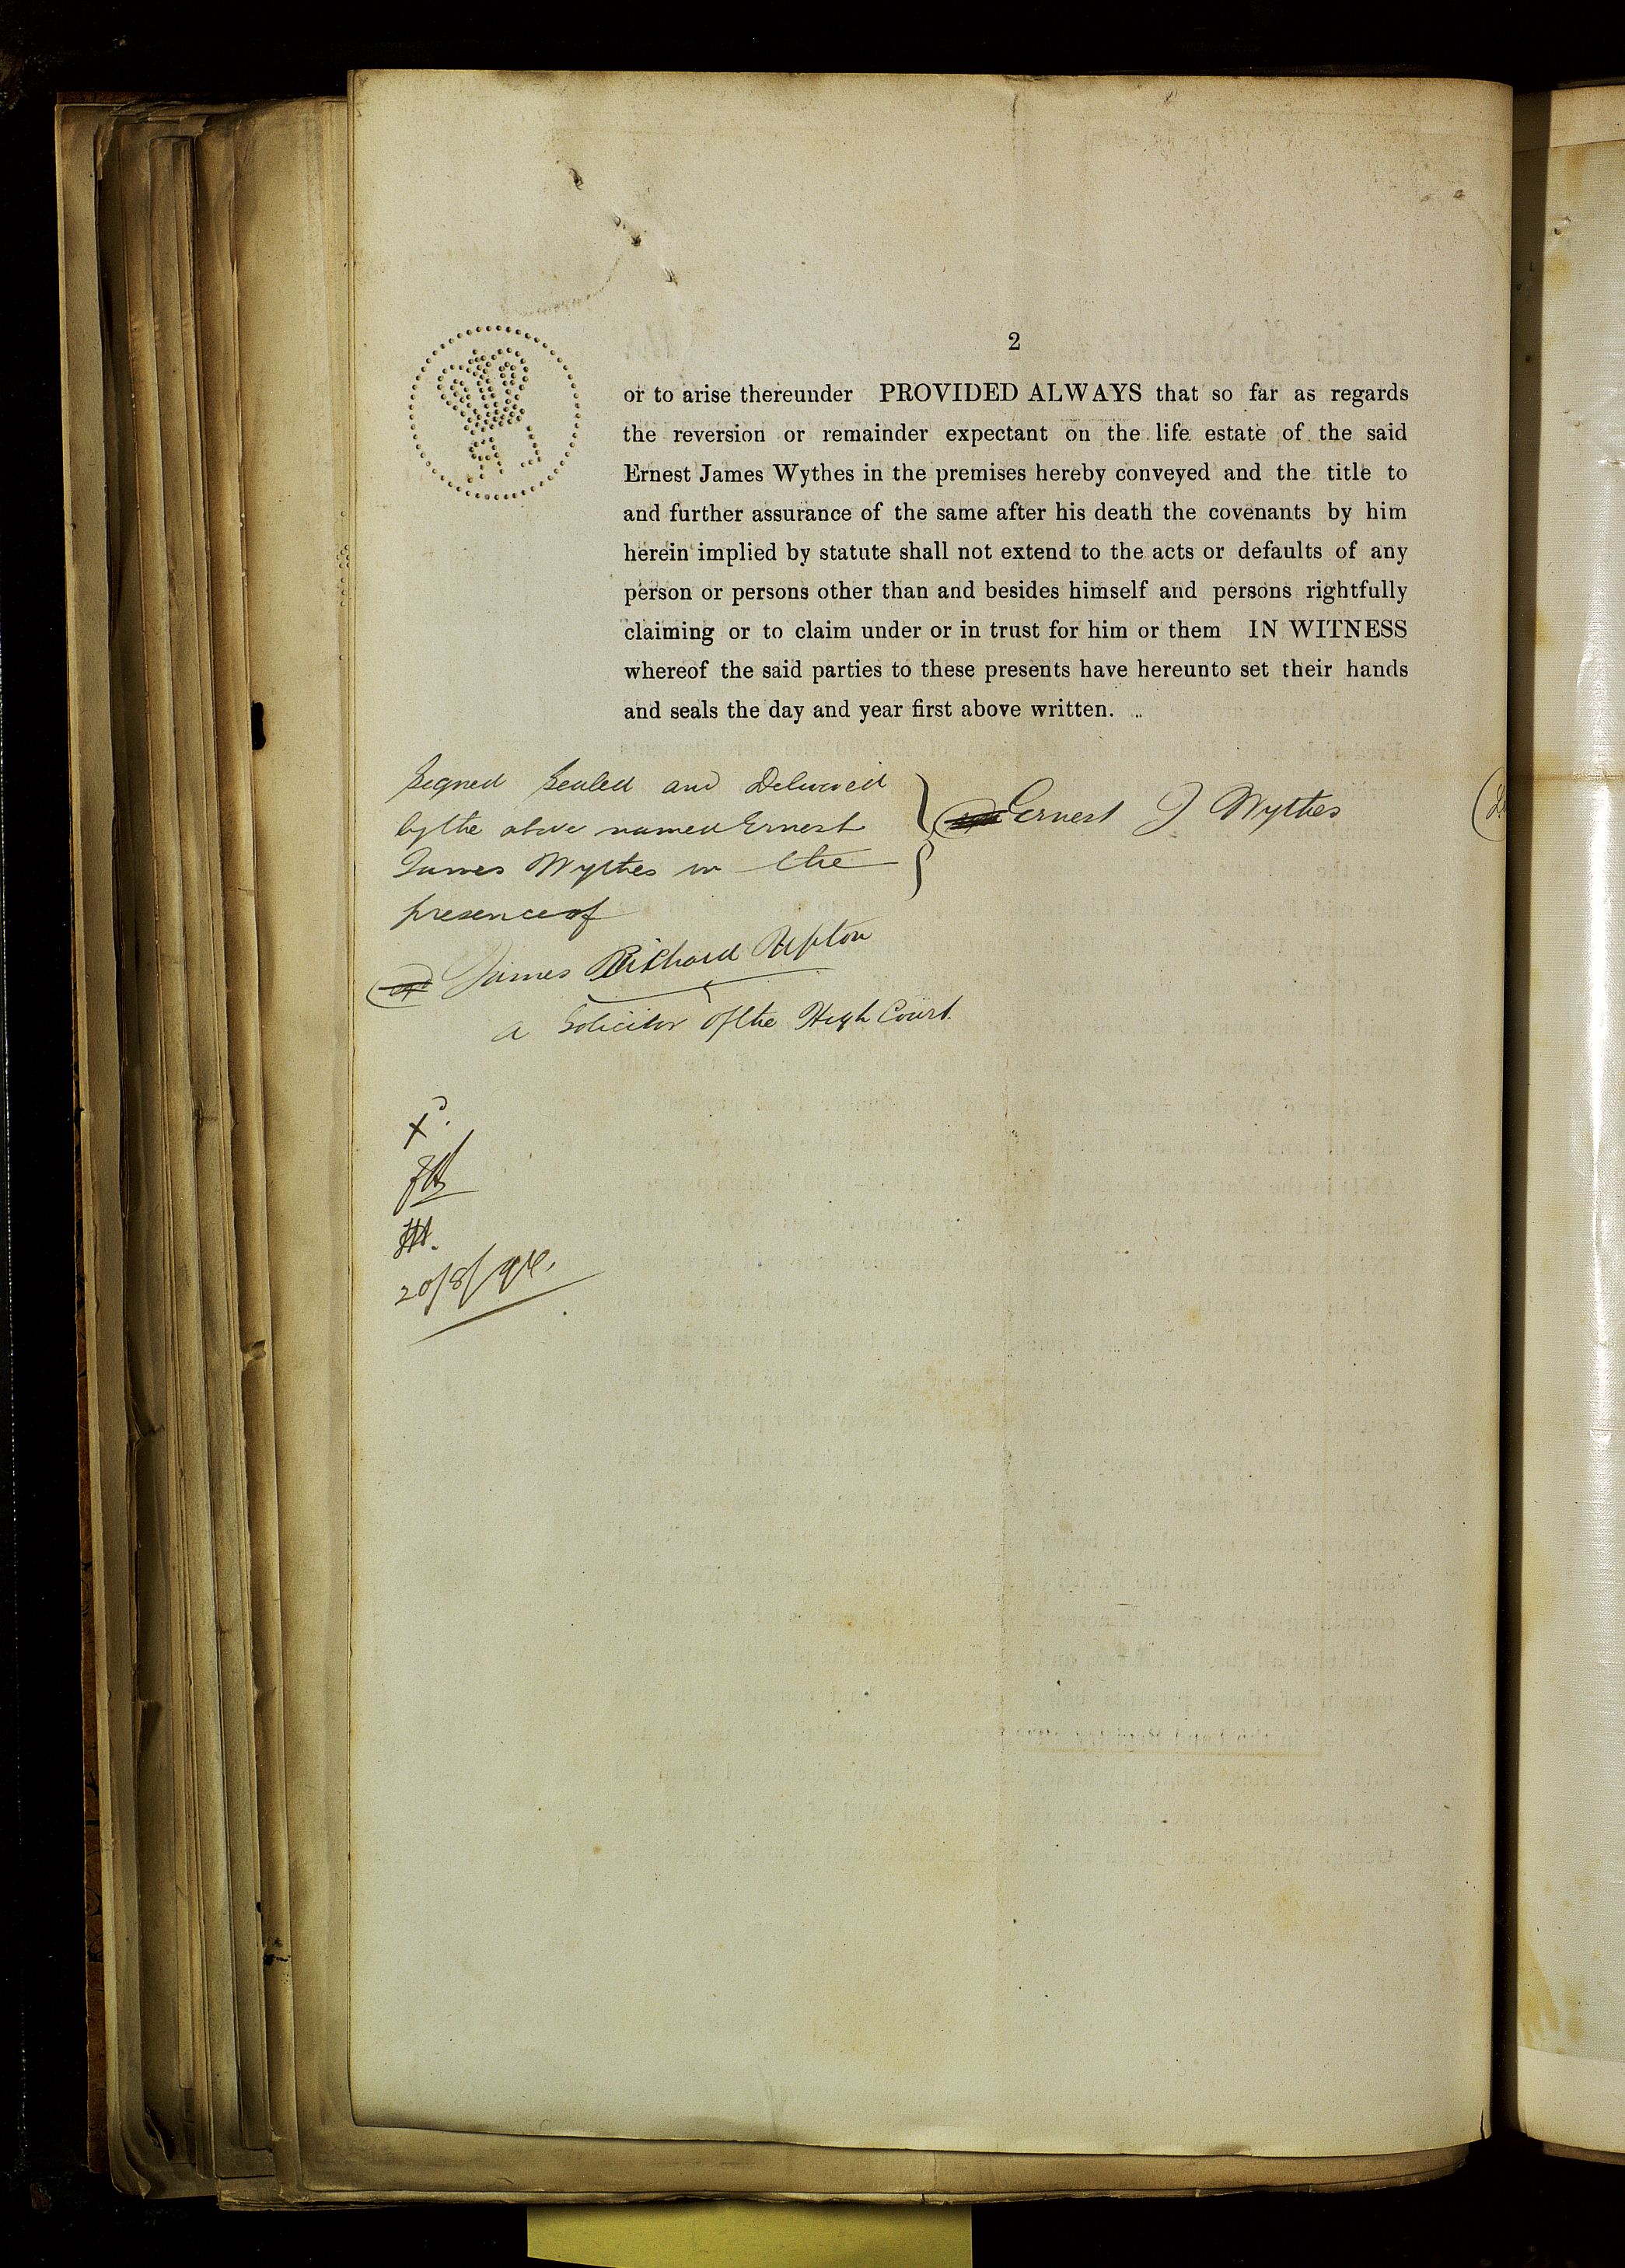 2
or to arise thereunder PROVIDED ALWAYS that so far as regards
the reversion or remainder expectant on the life estate of the said
Ernest James Wythes in the premises hereby conveyed and the title to
and further assurance of the same after his death the covenants by him
herein implied by statute shall not extend to the acts or defaults of any
person or persons other than and besides himself and persons rightfully
claiming or to claim under or in trust for him or them IN WITNESS
whereof the said parties to these presents have hereunto set their hands
and seals the day and year first above written.
Signed Sealed and Delivered
by the above named Ernest
James Wythes in the
presence of
Ernest J Wythes
James Richard Upton
a Solicitor of the High Court
20/8/